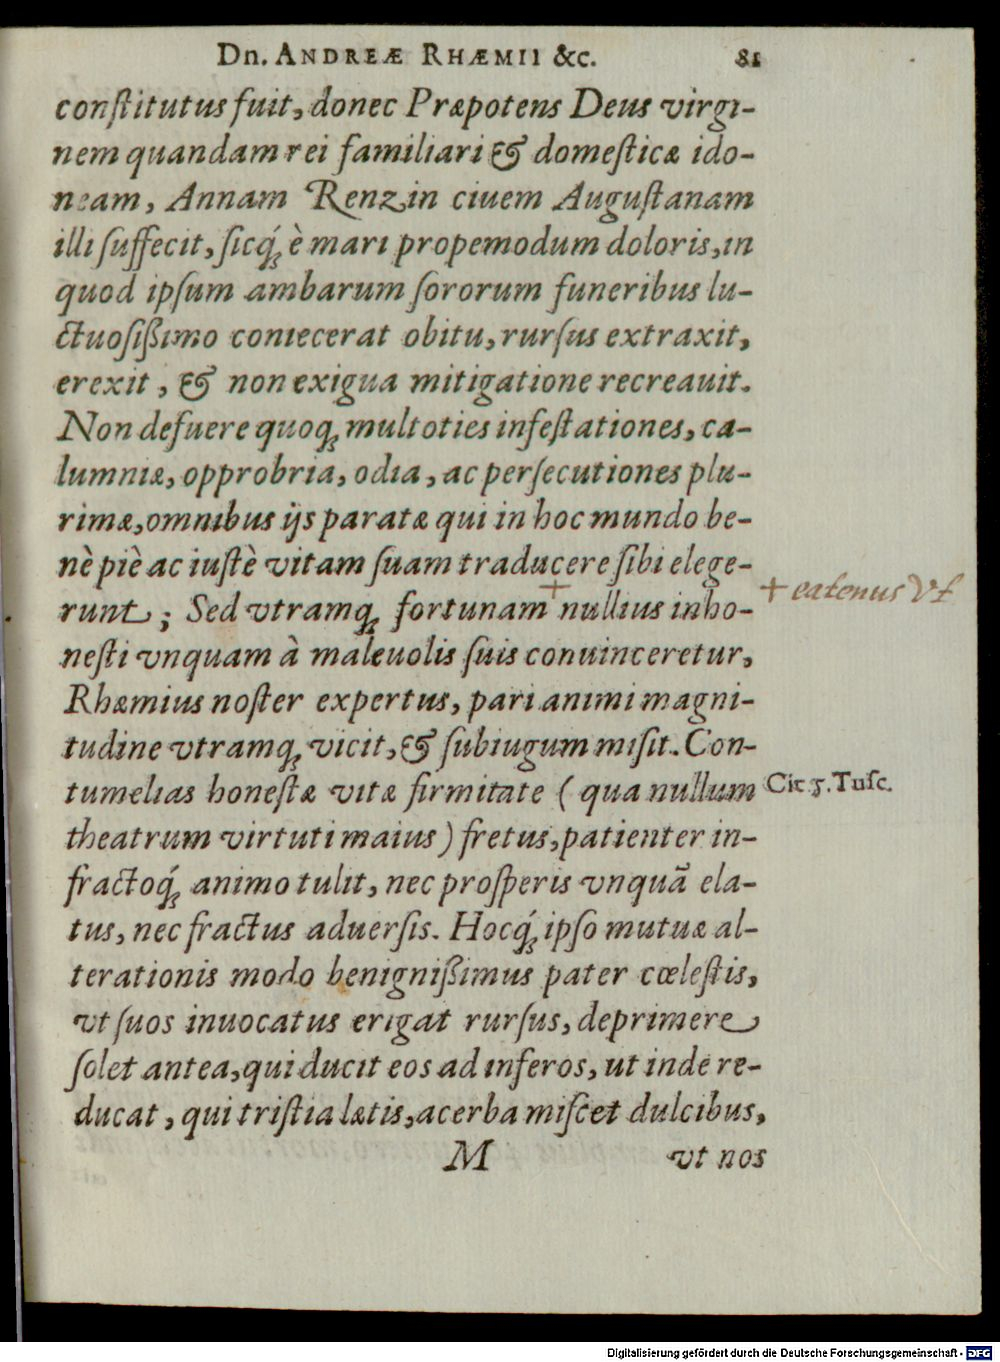 Dn. ANDREÆ RHÆMII &c. 81
constitutus fuit, donec Præpotens Deus virgi-
nem quandam rei familiari & domesticæ ido-
neam, Annam Renzin ciuem Augustanam
illi suffecit, sicq́; è mari propemodum doloris, in
quod ipsum ambarum sororum funeribus lu-
ctuosißimo coniecerat obitu, rursus extraxit,
erexit, & non exigua mitigatione recreauit.
Non defuere quoq; multoties infestationes, ca-
lumniæ, opprobria, odia, ac persecutiones plu-
rimæ, omnibus ijs paratæ qui in hoc mundo be-
nè piè ac iustè vitam suam traducere sibi elege-
runt; Sed vtramq; fortunam + nullius inho-
+ eatenus Vt
nesti vnquam à maleuolis suis conuinceretur,
Rhæmius noster expertus, pari animi magni-
tudine vtramq; vicit, & subiugum misit. Con-
tumelias honestæ vitæ firmitate (qua nullum
Cic. 5. Tusc.
theatrum virtuti maius) fretus, patienter in-
fractoq́; animo tulit, nec prosperis vnquã ela-
tus, nec fractus aduersis. Hocq́; ipso mutuæ al-
terationis modo benignißimus pater cœlestis,
vt suos inuocatus erigat rursus, deprimere
solet antea, qui ducit eos ad inferos, ut inde re-
ducat, qui tristia lætis, acerba miscet dulcibus,
M vt nos
Digitalisierung gefördert durch die Deutsche Forschungsgemeinschaft - DFG